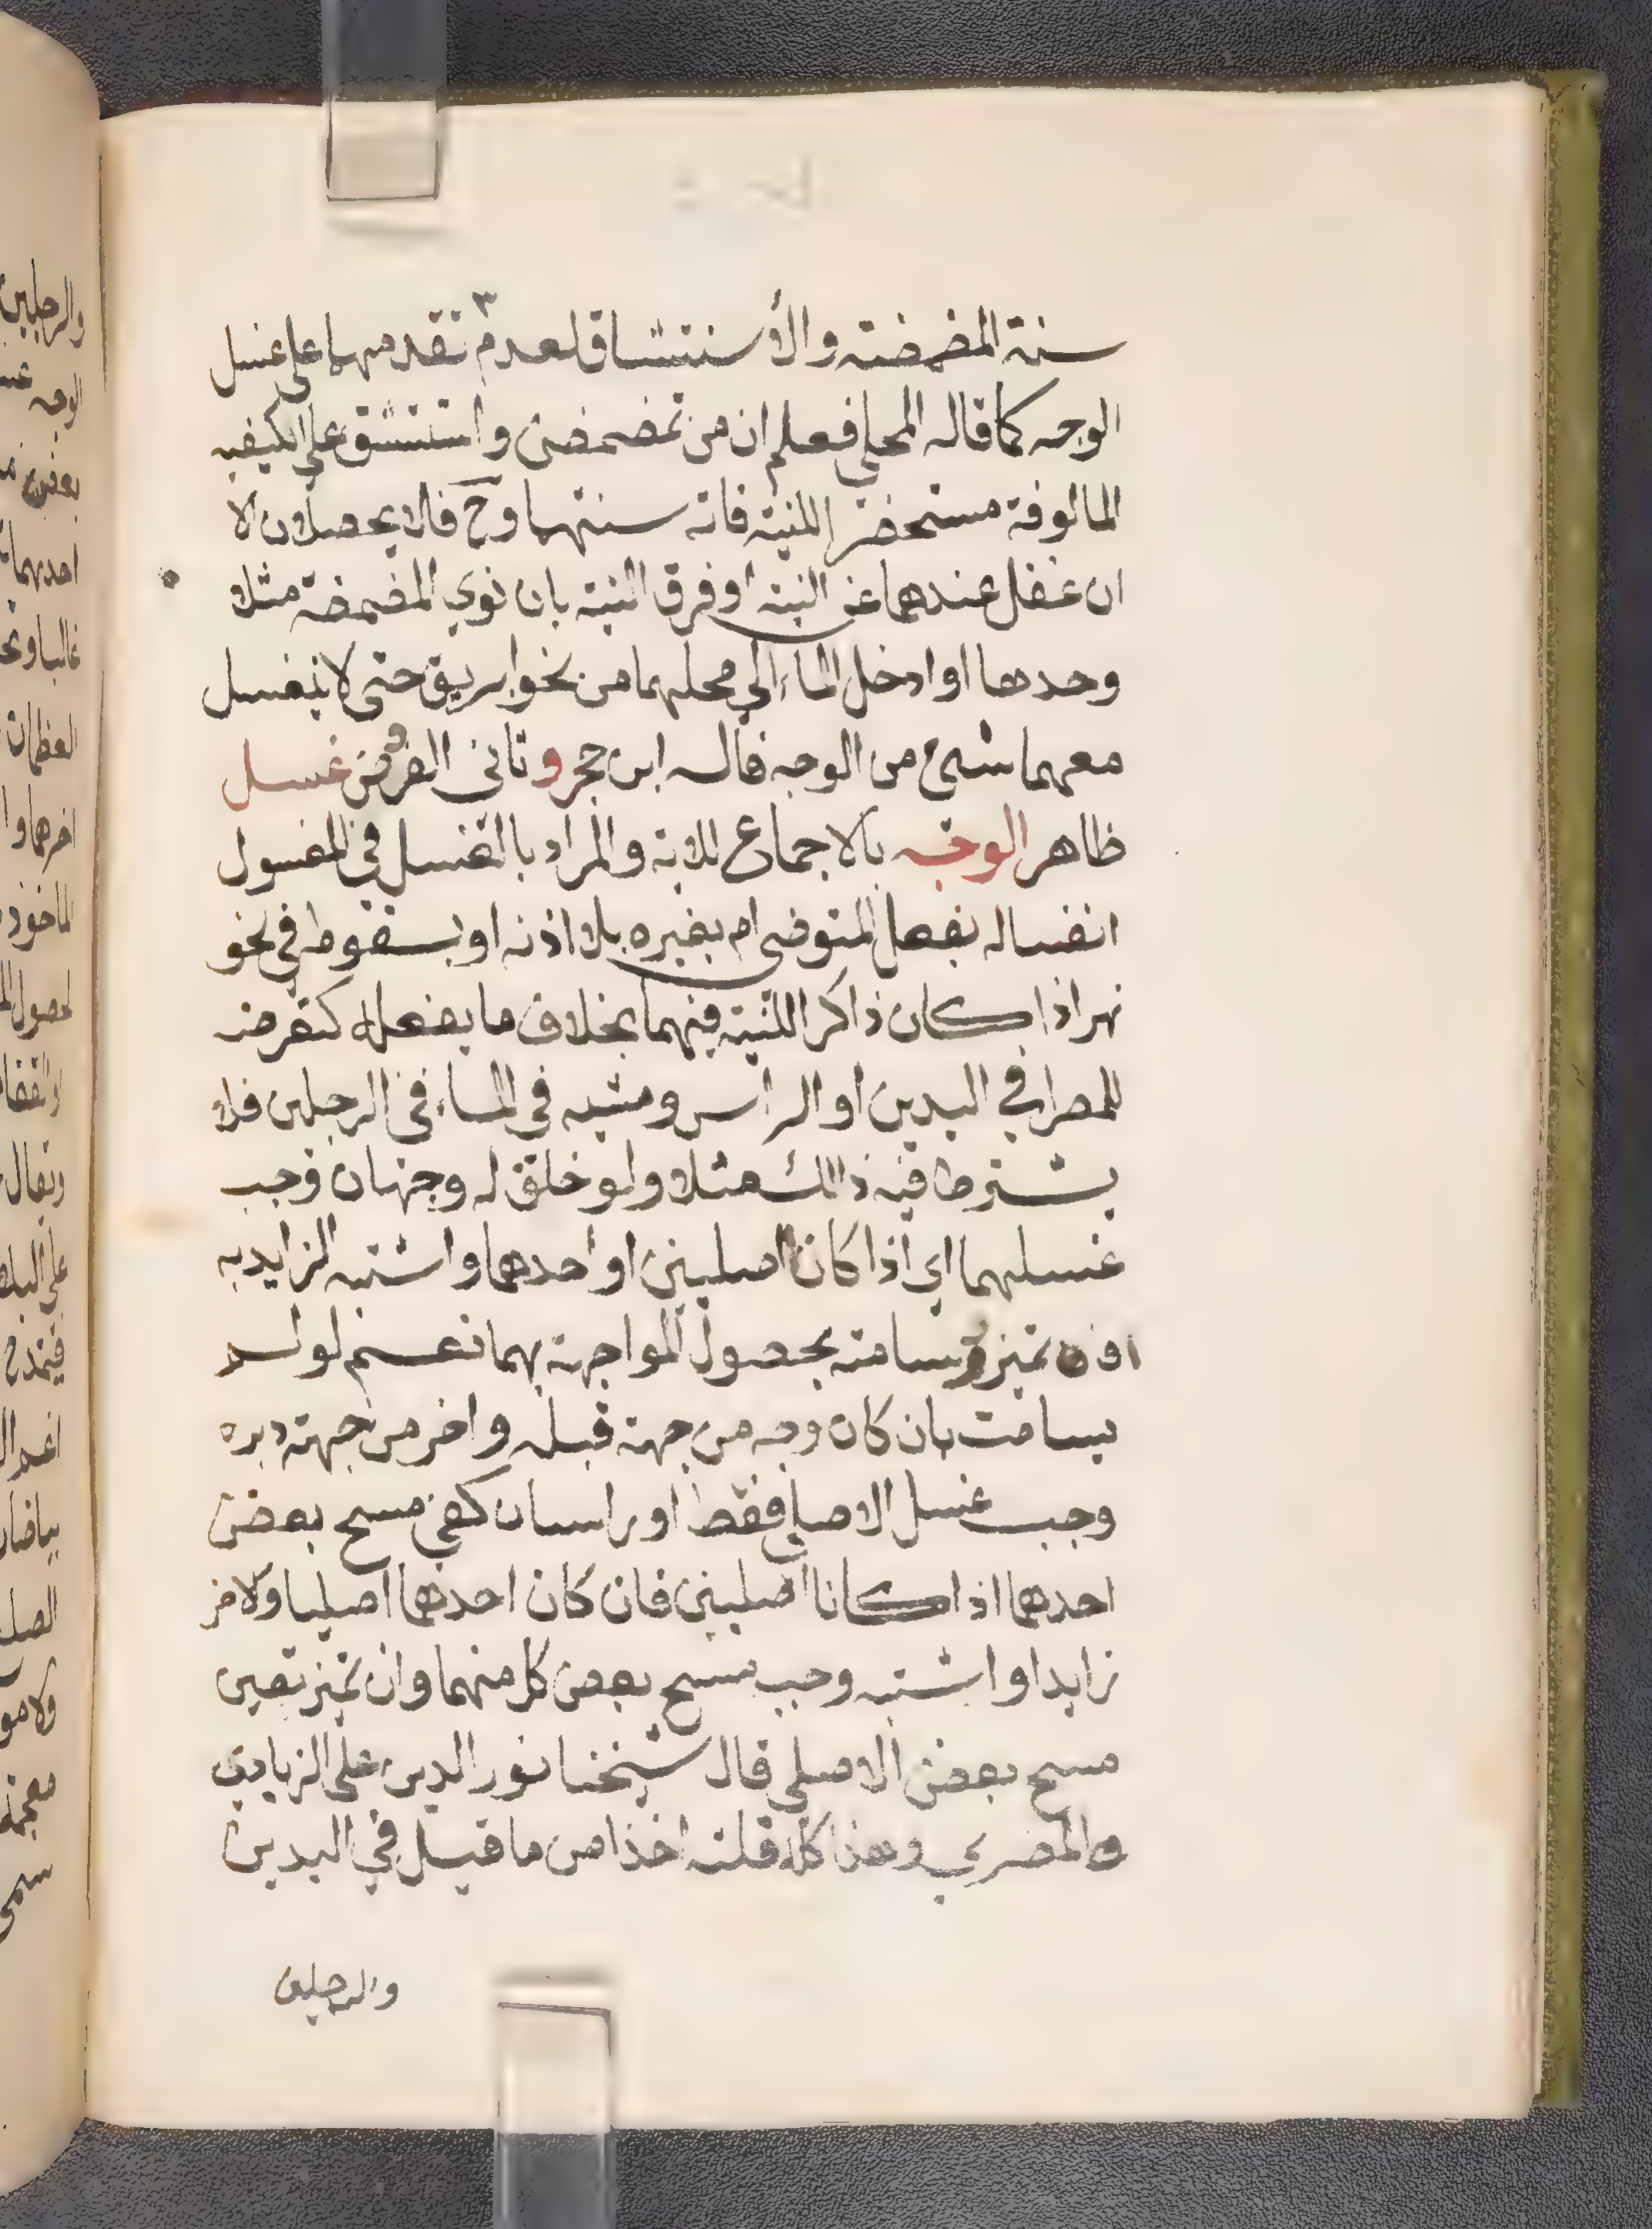 سنة المضمضة والأستنشاق لعدم تقدمهما على غسل
الوجه كما قاله المحلي فعلم ان من تمضمض واستنشق على الكيفيه
المالوفة مستحضر اللنية فاته سنتهما وح فلا يحصلان الا
ان غفل عندهما عن النية او فرق النية بان نوي المضمضة مثلا
وحدها او ادخل الماء الي محلهما من نحو ابريق حتى لا ينغسل
معهما شيء من الوجه قاله ابن حجر وثاني الفروض غسل
ظاهر الوجه بالاجماع للاية والمراد بالغسل في المغسول
انغساله بفعل المتوضى ام بغيره بلا اذنه او بسقوطه في نحو
نهر اذا كان ذاكر اللنية فيهما بخلاف ما بفعله كتعرضه
للمطر في اليدين او الراس ومشيه في الماء في الرجلين فلا
يشترط فيه ذالك مثلا ولو خلق له وجهان وجب
غسلهما اي اذا كانا اصليين او احدهما واشتبه الزايد به
اون تميز وسامته بحصول المواجهة بهما نعم لو لم
يسامت بان كان وجه من جهة قبله واخر من جهة دبره
وجب غسل الاصلي فقط او راسان كفي مسح بعض
احدهما اذا كانا اصليين فان كان احدهما اصليا ولاخر
زايدا واشتبه وجب مسح بعض كل منهما وان تميز تعين
مسح بعض الاصلي قال شيخنا نور الدين علي الزيادي
والمصري وهذا كله قلته اخذا من ما قيل في اليدين
والرجلين